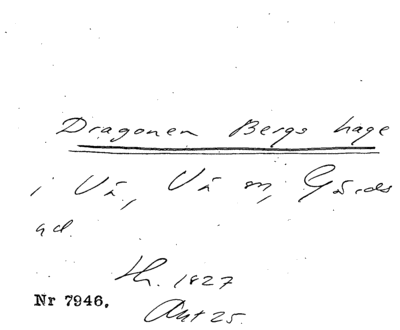 Dragonen Bergs hage
i Vä, Vä sn, Gärds
hd.
th. 1827
Nr 7946.
Ant 25.